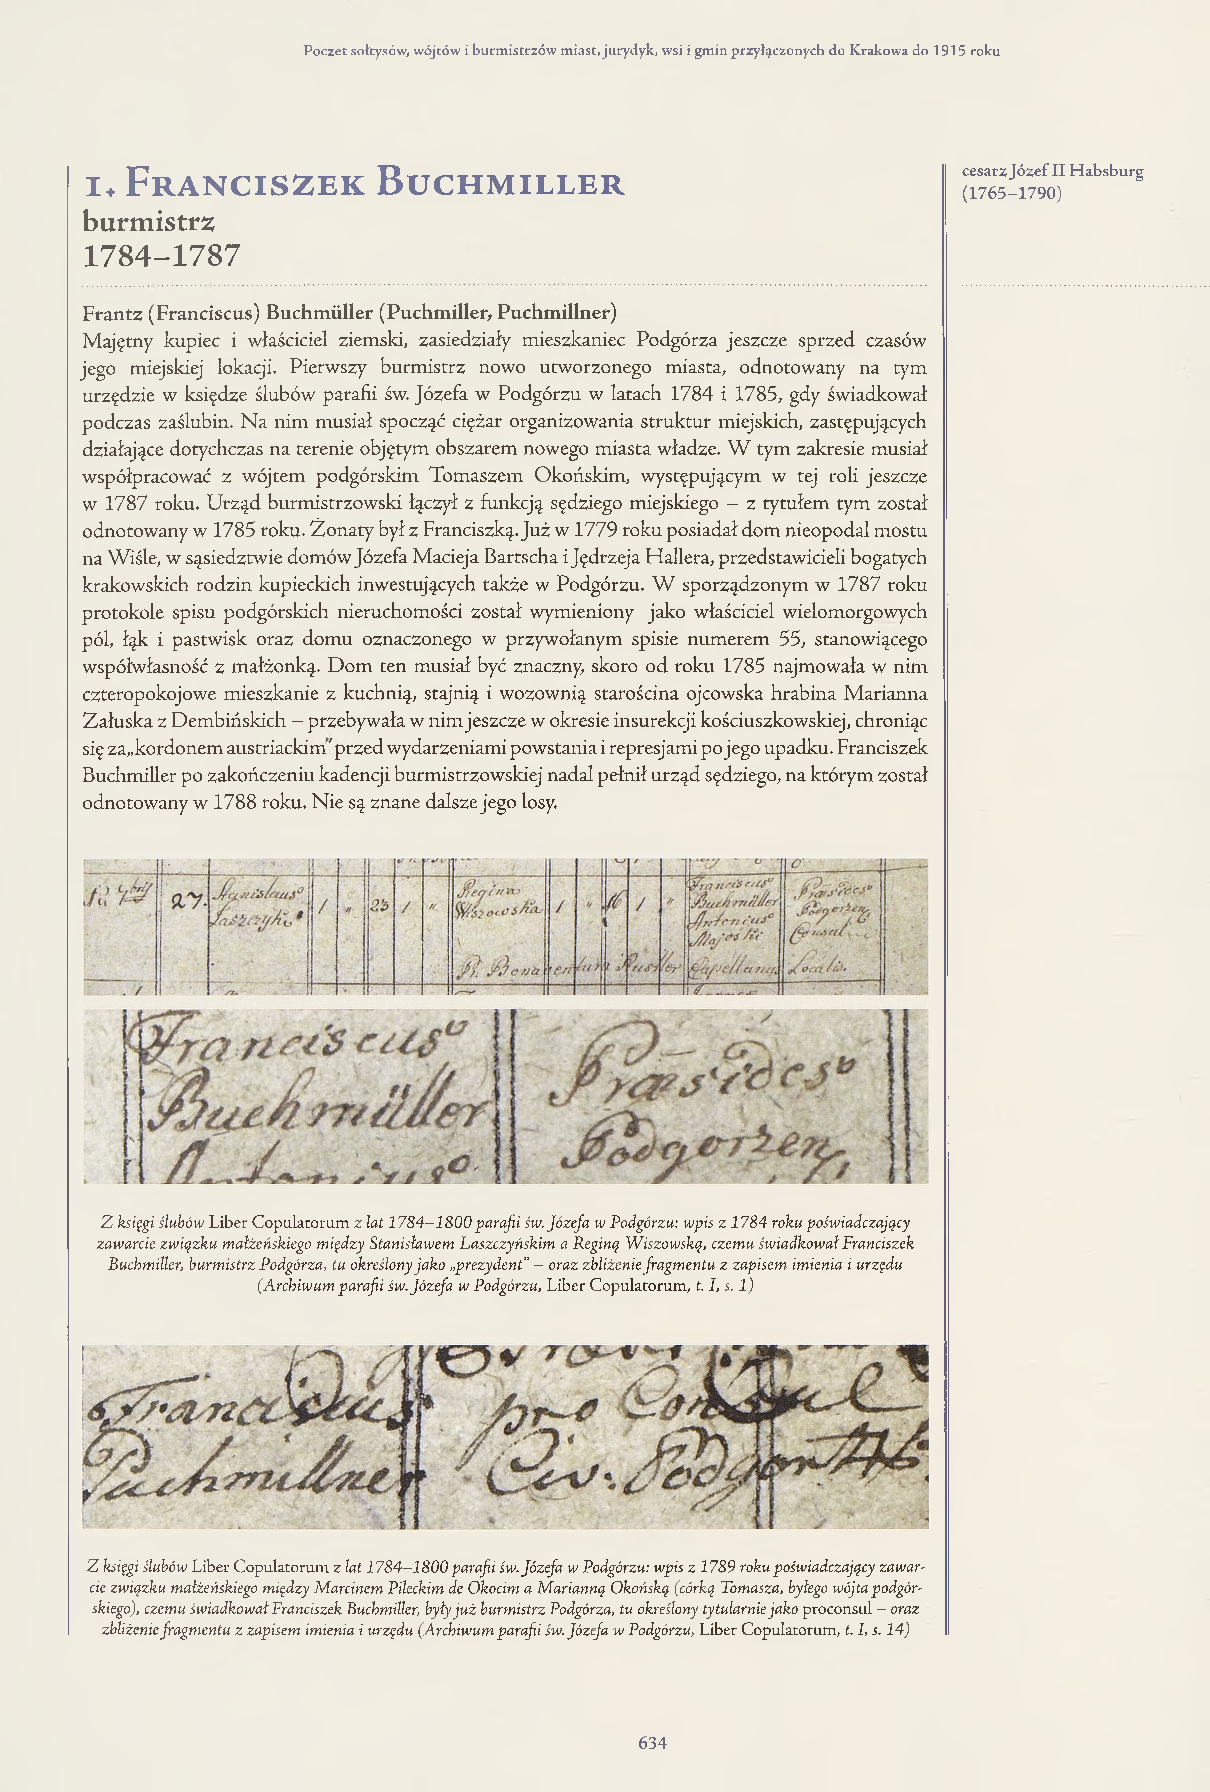 Poczet sołtysów, wójtów i burmistrzów miast, jurydyk, wsi i gmin przyłączonych do Krakowa do 1915 roku
1. Franciszek Buchmiller
burmistrz
1784–1787
cesarz Józef II Habsburg
(1765–1790)
Frantz (Franciscus) Buchmüller (Puchmiller, Puchmillner)
Majętny kupiec i właściciel ziemski, zasiedziały mieszkaniec Podgórza jeszcze sprzed czasów
jego miejskiej lokacji. Pierwszy burmistrz nowo utworzonego miasta, odnotowany na tym
urzędzie w księdze ślubów parafii św. Józefa w Podgórzu w latach 1784 i 1785, gdy świadkował
podczas zaślubin. Na nim musiał spocząć ciężar organizowania struktur miejskich, zastępujących
działające dotychczas na terenie objętym obszarem nowego miasta władze. W tym zakresie musiał
współpracować z wójtem podgórskim Tomaszem Okońskim, występującym w tej roli jeszcze
w 1787 roku. Urząd burmistrzowski łączył z funkcją sędziego miejskiego – z tytułem tym został
odnotowany w 1785 roku. Żonaty był z Franciszką. Już w 1779 roku posiadał dom nieopodal mostu
na Wiśle, w sąsiedztwie domów Józefa Macieja Bartscha i Jędrzeja Hallera, przedstawicieli bogatych
krakowskich rodzin kupieckich inwestujących także w Podgórzu. W sporządzonym w 1787 roku
protokole spisu podgórskich nieruchomości został wymieniony jako właściciel wielomorgowych
pól, łąk i pastwisk oraz domu oznaczonego w przywołanym spisie numerem 55, stanowiącego
współwłasność z małżonką. Dom ten musiał być znaczny, skoro od roku 1785 najmowała w nim
czteropokojowe mieszkanie z kuchnią, stajnią i wozownią starościna ojcowska hrabina Marianna
Załuska z Dembińskich – przebywała w nim jeszcze w okresie insurekcji kościuszkowskiej, chroniąc
się za „kordonem austriackim" przed wydarzeniami powstania i represjami po jego upadku. Franciszek
Buchmiller po zakończeniu kadencji burmistrzowskiej nadal pełnił urząd sędziego, na którym został
odnotowany w 1788 roku. Nie są znane dalsze jego losy.
27. Stanislaus 1 " 23 1 " Regina Wiszowska 1 " 16 1 " Franciscus Præsides
Buchmüller Podgorzen,
Antonius Consul
Majoski
Bonaventura Capellanus Localis.
Franciscus Præsides
Buchmüller Podgorzen,
Antonius
Z księgi ślubów Liber Copulatorum z lat 1784–1800 parafii św. Józefa w Podgórzu: wpis z 1784 roku poświadczający
zawarcie związku małżeńskiego między Stanisławem Laszczyńskim a Reginą Wiszowską, czemu świadkował Franciszek
Buchmiller, burmistrz Podgórza, tu określony jako „prezydent" – oraz zbliżenie fragmentu z zapisem imienia i urzędu
(Archiwum parafii św. Józefa w Podgórzu, Liber Copulatorum, t. I, s. 1)
Franciscus pro Consul
Puchmillner Civ: Podgor
Z księgi ślubów Liber Copulatorum z lat 1784–1800 parafii św. Józefa w Podgórzu: wpis z 1789 roku poświadczający zawar-
cie związku małżeńskiego między Marcinem Pileckim de Okocim a Marianną Okońską (córką Tomasza, byłego wójta podgór-
skiego), czemu świadkował Franciszek Buchmiller, były już burmistrz Podgórza, tu określony tytularnie jako proconsul – oraz
zbliżenie fragmentu z zapisem imienia i urzędu (Archiwum parafii św. Józefa w Podgórzu, Liber Copulatorum, t. I, s. 14)
634